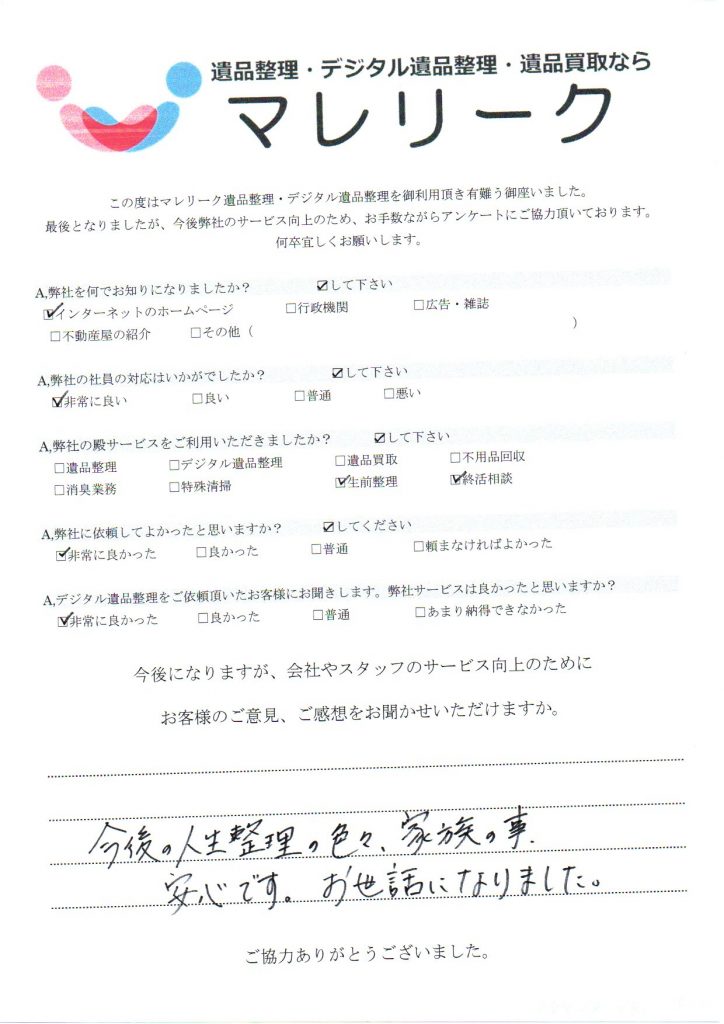 遺品整理・デジタル遺品整理・遺品買取なら
マレリーク
この度はマレリーク遺品整理・デジタル遺品整理を御利用頂き有難う御座いました。
最後となりましたが、今後弊社のサービス向上のため、お手数ながらアンケートにご協力頂いております。
何卒宜しくお願いします。
A,弊社を何でお知りになりましたか？ ☑して下さい
☑インターネットのホームページ □行政機関 □広告・雑誌
□不動産屋の紹介 □その他（ ）
A,弊社の社員の対応はいかがでしたか？ ☑して下さい
☑非常に良い □良い □普通 □悪い
A,弊社の殿サービスをご利用いただきましたか？ ☑して下さい
□遺品整理 □デジタル遺品整理 □遺品買取 □不用品回収
□消臭業務 □特殊清掃 ☑生前整理 ☑終活相談
A,弊社に依頼してよかったと思いますか？ ☑してください
☑非常に良かった □良かった □普通 □頼まなければよかった
A,デジタル遺品整理をご依頼頂いたお客様にお聞きします。弊社サービスは良かったと思いますか？
☑非常に良かった □良かった □普通 □あまり納得できなかった
今後になりますが、会社やスタッフのサービス向上のために
お客様のご意見、ご感想をお聞かせいただけますか。
今後の人生整理の色々、家族の事、
安心です。お世話になりました。
ご協力ありがとうございました。